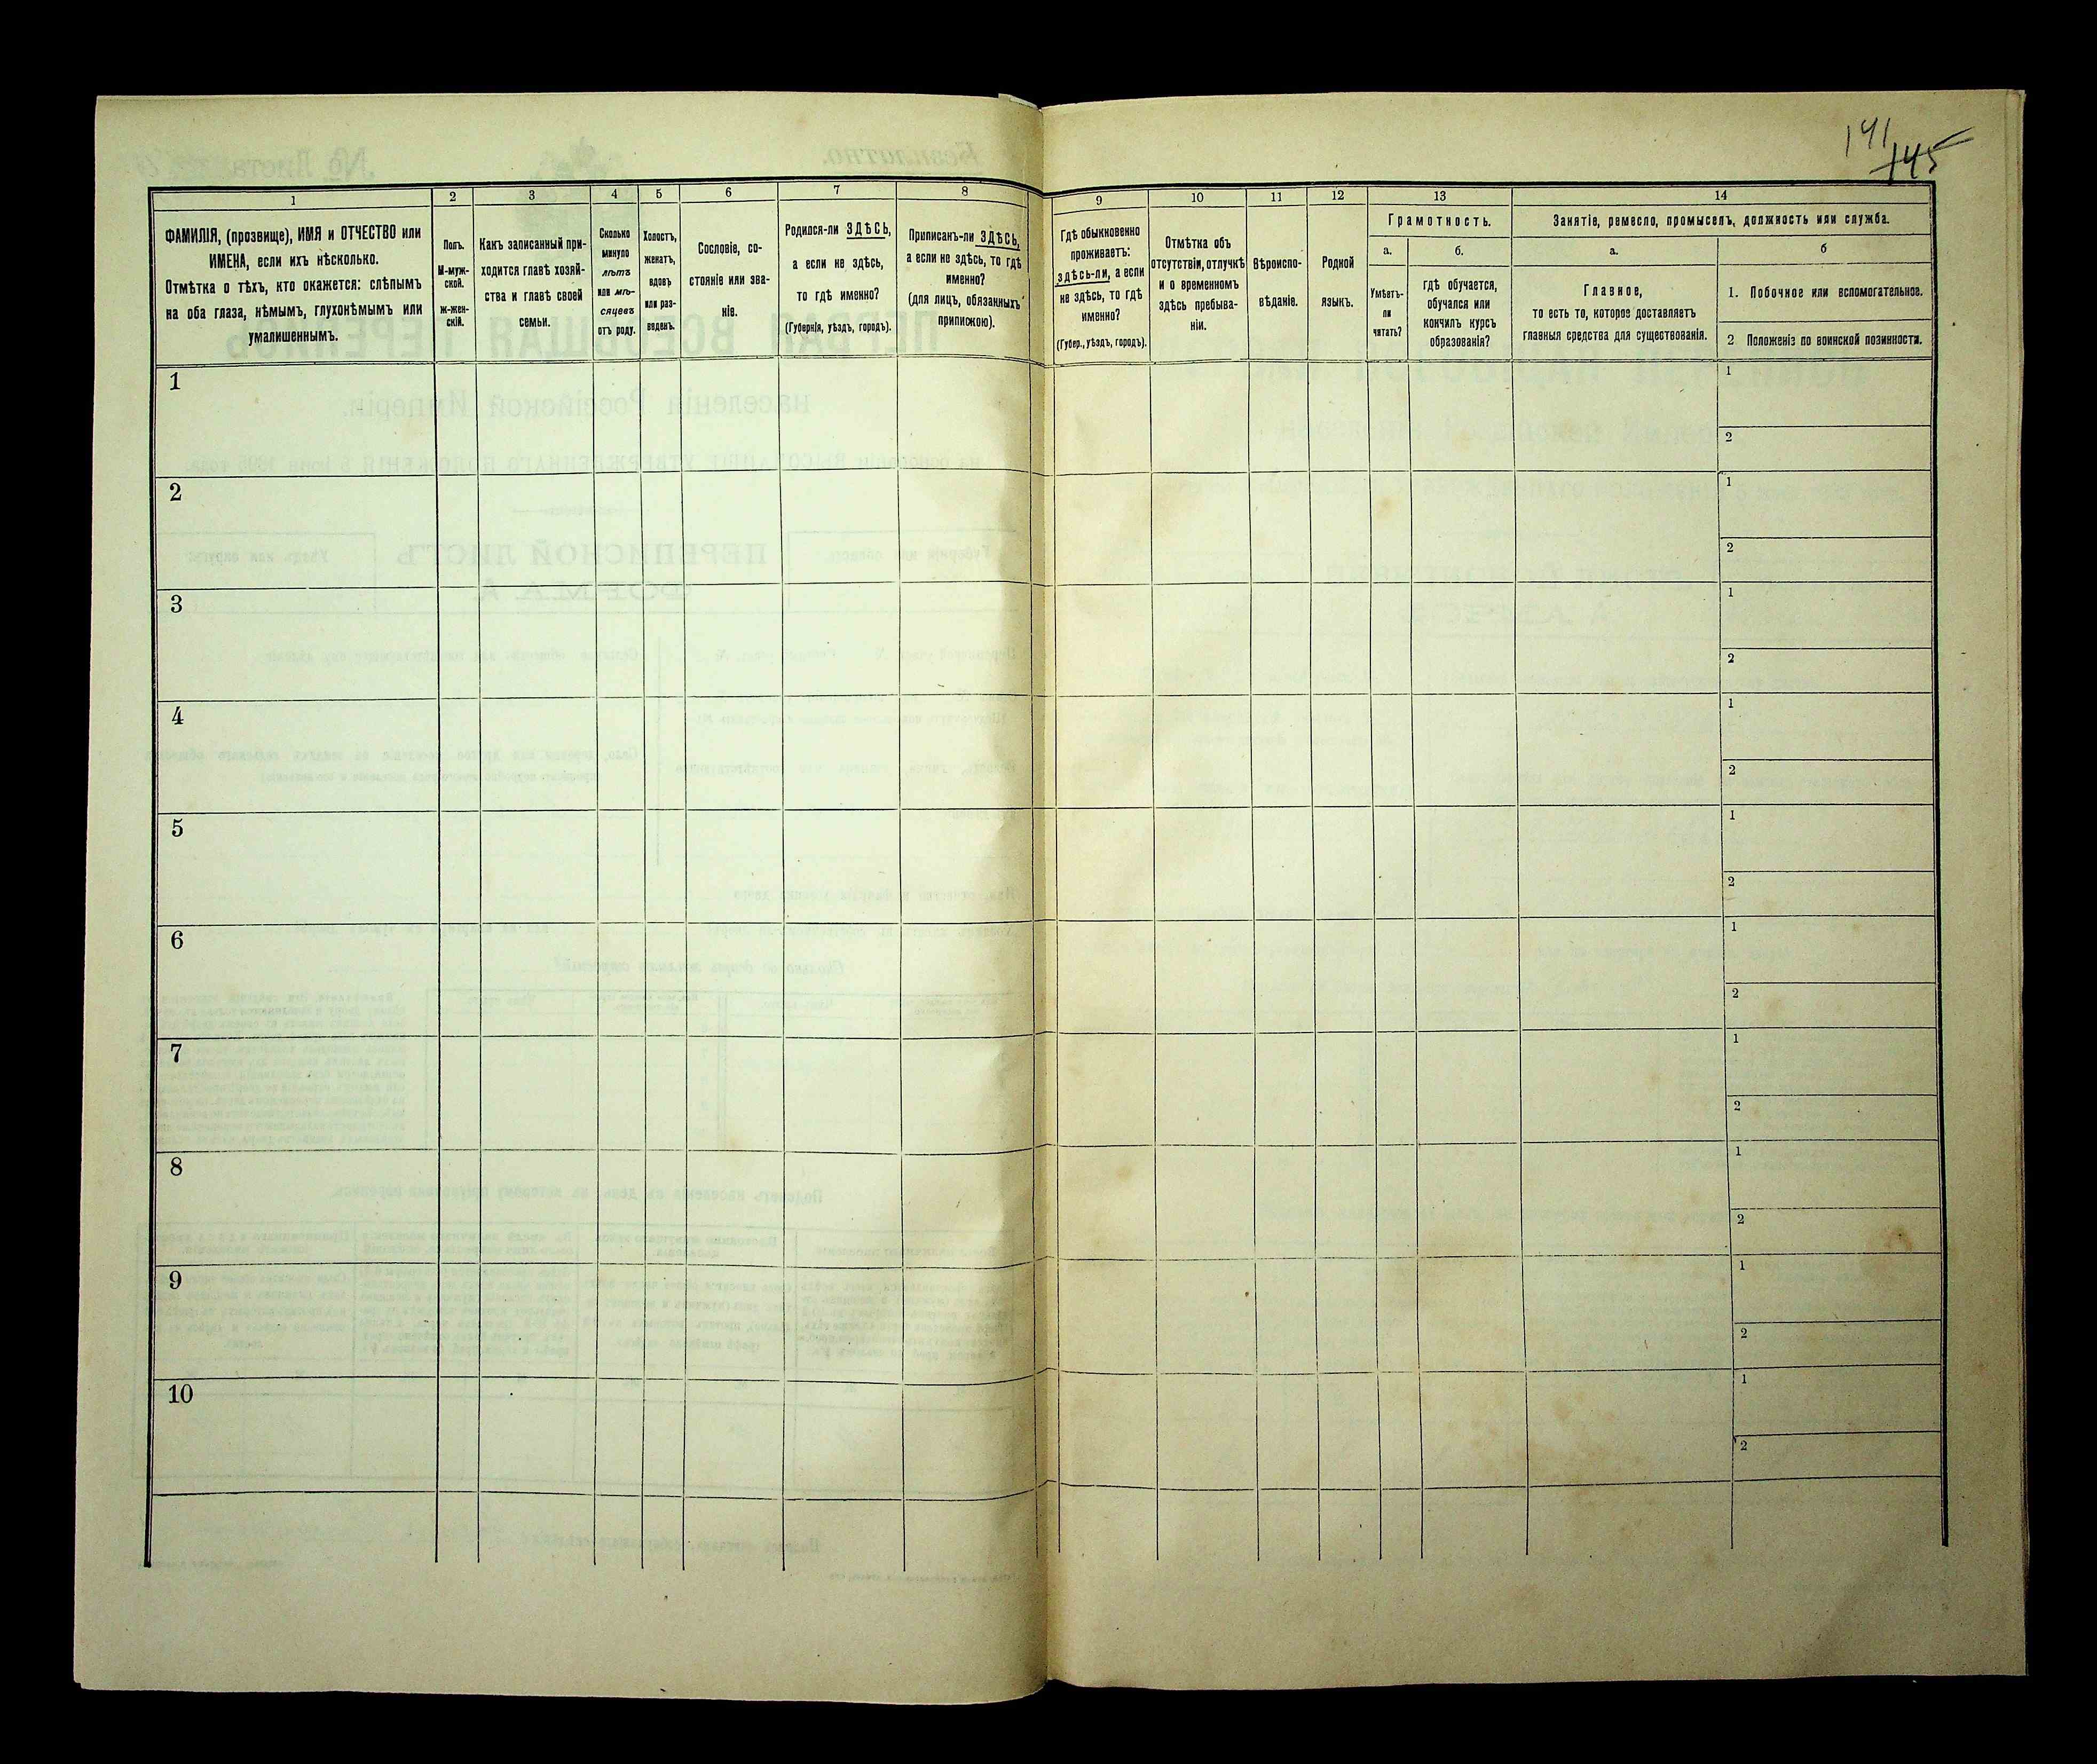 141
145
1
ФАМИЛІЯ, (прозвище), ИМЯ и ОТЧЕСТВО или
ИМЕНА, если ихъ нѣсколько.
Отмѣтка о тѣхъ, кто окажется: слѣпымъ
на оба глаза, нѣмымъ, глухонѣмымъ или
умалишеннымъ.
2
Полъ.
М-муж-
ской.
ж-жен-
скій.
3
Какъ записанный при-
ходится главѣ хозяй-
ства и главѣ своей
семьи.
4
Сколько
минуло
лѣтъ
или мѣ-
сяцевъ
отъ роду.
5
Холостъ,
женатъ,
вдовъ
или раз-
веденъ.
6
Сословіе, со-
стояніе или зва-
ніе.
7
Родился-ли ЗДѢСЬ,
а если не здѣсь,
то гдѣ именно?
(Губернія, уѣздъ, городъ).
8
Приписанъ-ли ЗДѢСЬ,
а если не здѣсь, то гдѣ
именно?
(для лицъ, обязанныхъ
припискою).
9
Гдѣ обыкновенно
проживаетъ:
здѣсь-ли, а если
не здѣсь, то гдѣ
именно?
(Губер., уѣздъ, городъ).
10
Отмѣтка объ
отсутствіи, отлучкѣ
и о временномъ
здѣсь пребыва-
ніи.
11
Вѣроиспо-
вѣданіе.
12
Родной
языкъ.
13
Грамотность.
а.
Умѣетъ-
ли
читать?
б.
гдѣ обучается,
обучался или
кончилъ курсъ
образованія?
14
Занятіе, ремесло, промыселъ, должность или служба.
а.
Главное,
то есть то, которое доставляетъ
главныя средства для существованія.
б
1. Побочное или вспомогательное.
2 Положеніе по воинской повинности.
1
1
2
2
1
2
3
1
2
4
1
2
5
1
2
6
1
2
7
1
2
8
1
2
9
1
2
10
1
2